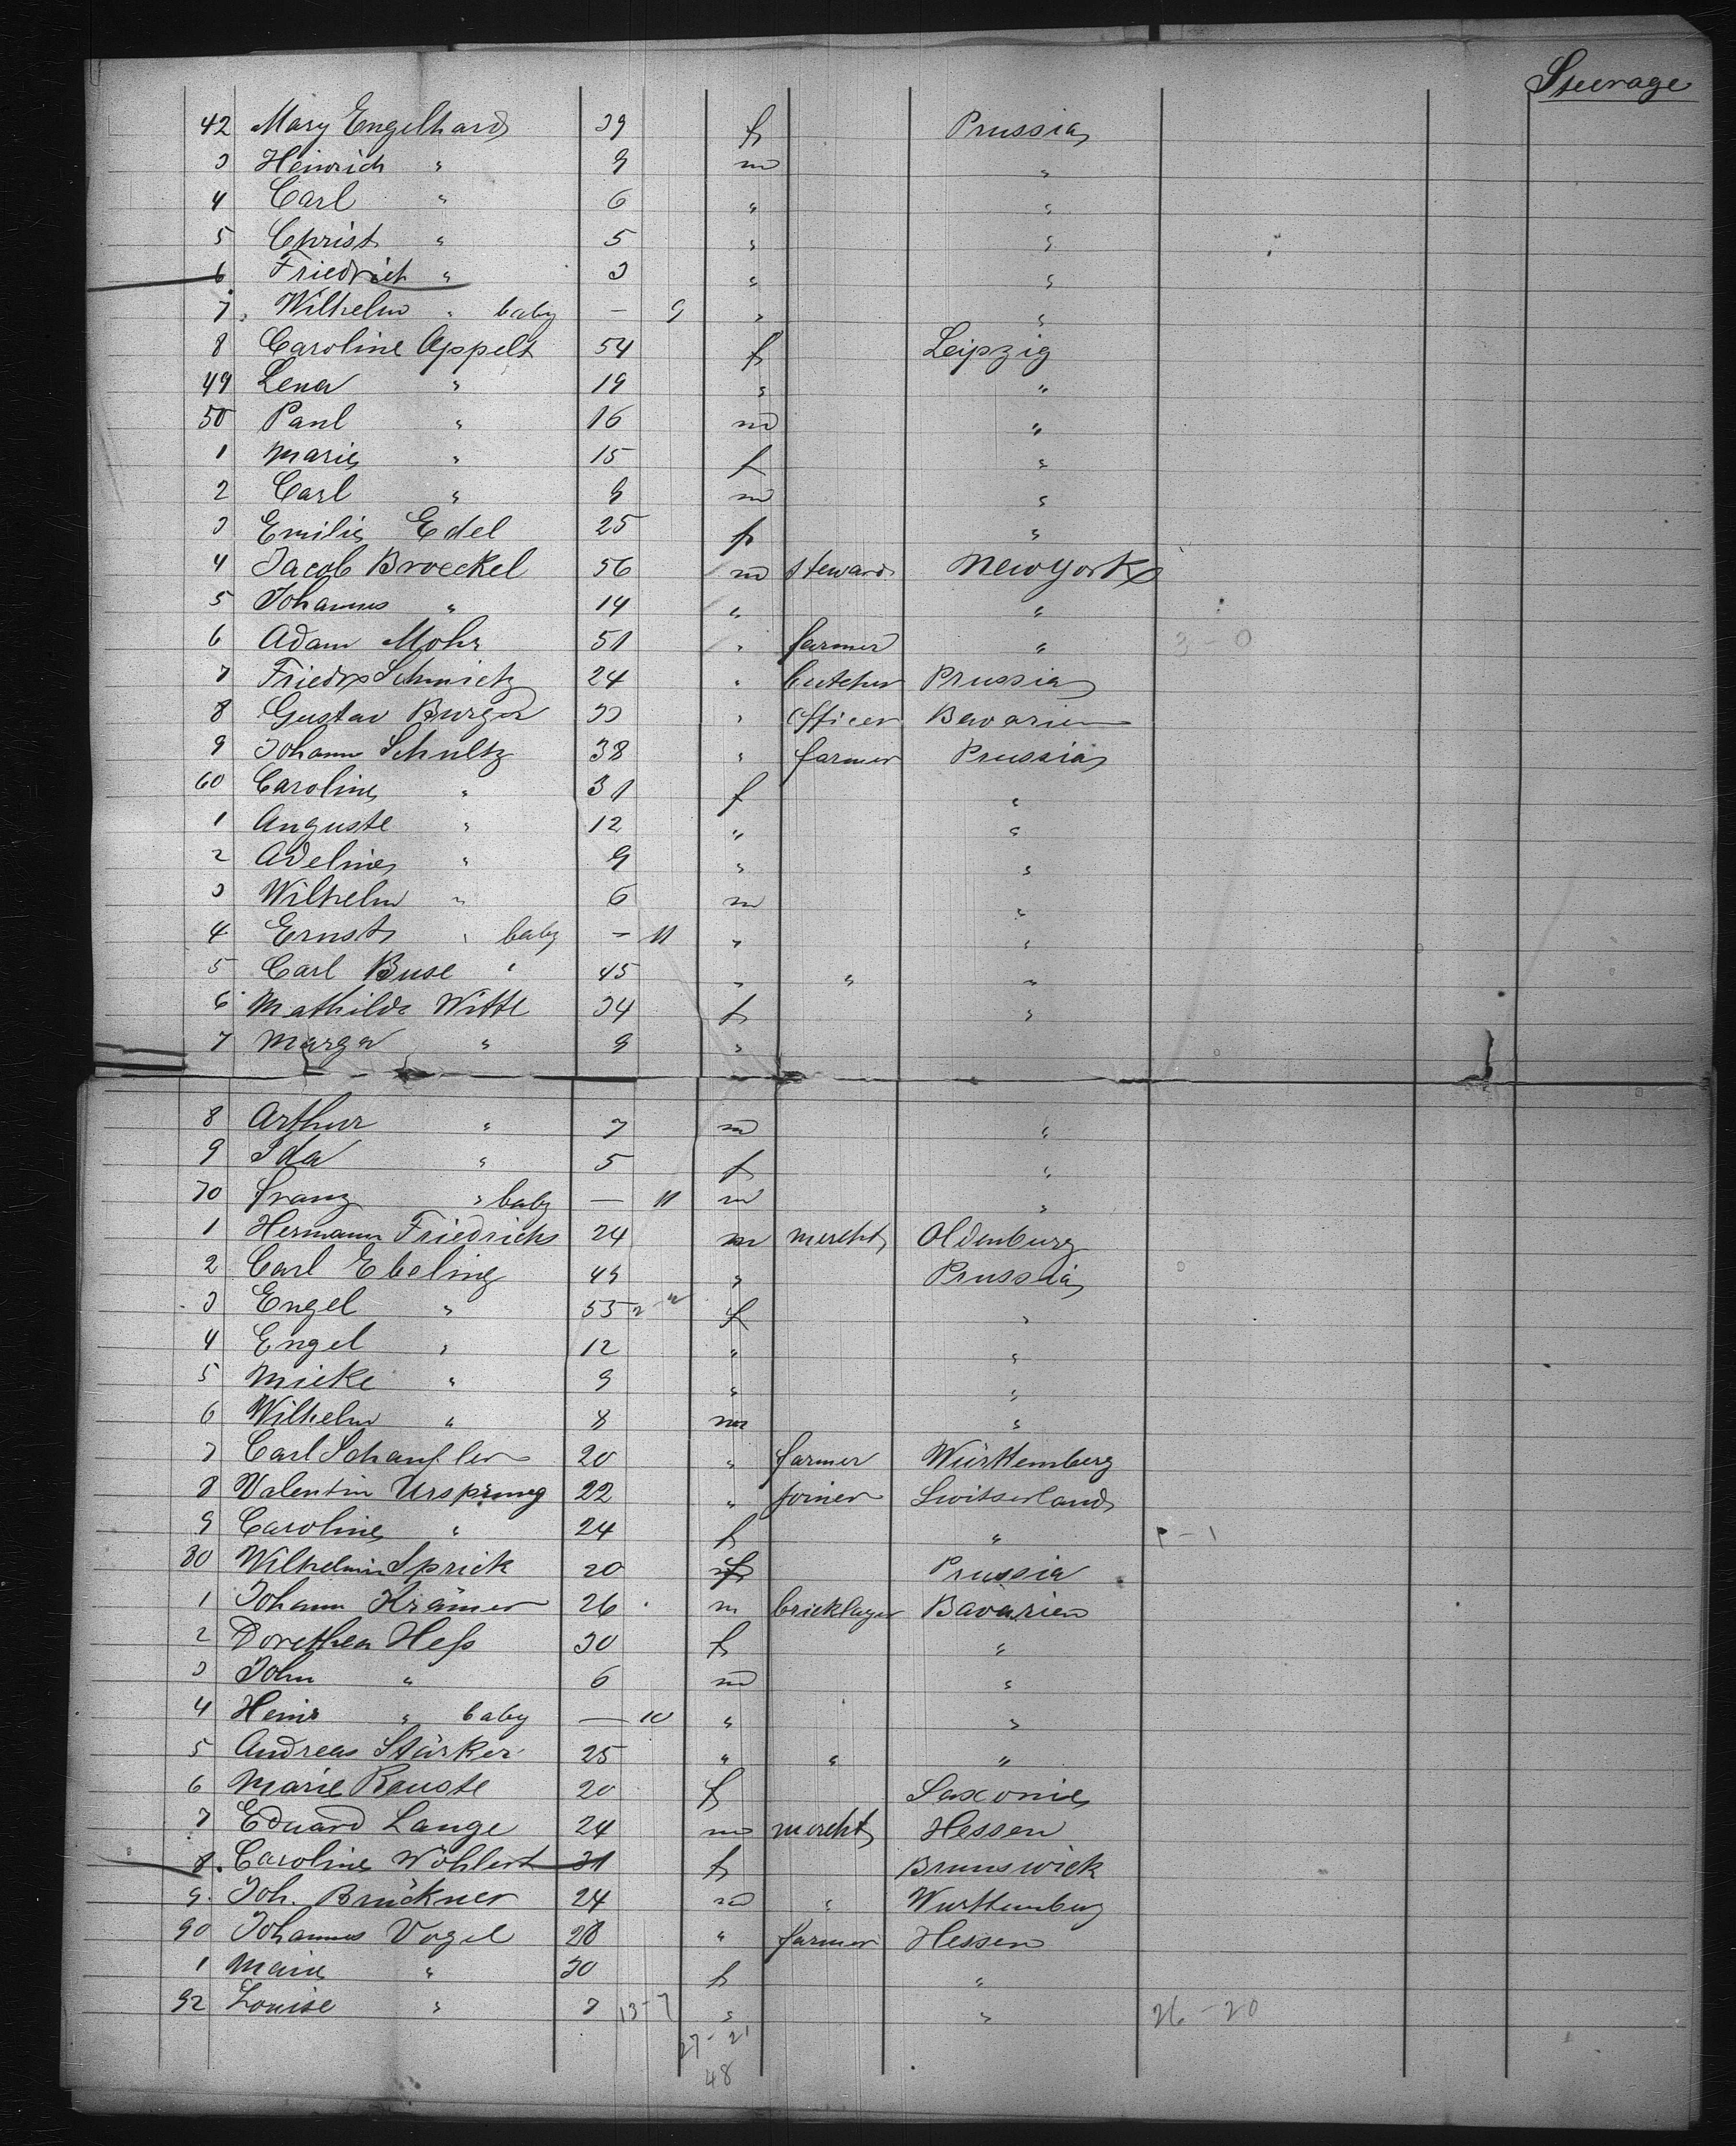 Steerage
42 Mary Engelhard 39 f Prussia
3 Heinrich " 9 m "
4 Carl " 6 " "
5 Christ " 5 " "
6 Friedrich " 3 " "
7 Wilhelm " baby — 9 " "
8 Caroline Appelt 54 f Leipzig
49 Lena " 19 " "
50 Paul " 16 m "
1 Marie " 15 f "
2 Carl " 9 m "
3 Emilie Edel 25 f "
4 Jacob Broeckel 56 m steward New York
5 Johannes " 14 " "
6 Adam Mohr 51 " farmer " 3 - 0
7 Friedr Schmietz 24 " butcher Prussia
8 Gustav Burger 33 " officer Bavarien
9 Johann Schultz 38 " farmer Prussia
60 Caroline " 31 f "
1 Auguste " 12 " "
2 Adeline " 9 " "
3 Wilhelm " 6 m "
4 Ernst " baby — 11 " "
5 Carl Buse 45 " " "
6 Mathilde Witte 34 f "
7 Marga " 9 "
8 Arthur " 7 m "
9 Ida " 5 f "
70 Franz " baby — 11 m "
1 Hermann Friedrichs 24 m mercht Oldenburg
2 Carl Ebeling 49 " Prussia
3 Engel " 55 f "
4 Engel " 12 " "
5 Mieke " 9 " "
6 Wilhelm " 8 m "
7 Carl Schaufler 20 " farmer Württemberg
8 Valentin Ursprung 22 " joiner Switserland
9 Caroline " 24 f " 1 - 1
80 Wilhelmin Sprick 20 f Prussia
1 Johann Krämer 26 m bricklayer Bavarien
2 Dorethea Heß 30 f "
3 John " 6 m "
4 Heinr " baby — 10 " "
5 Andreas Stärker 25 " " "
6 Marie Reuste 20 f Saxonie
7 Eduard Lange 24 m mercht Hessen
8 Caroline Wöhlert 31 f Brunswick
9 Joh. Brückner 24 m " Wurttemburg
90 Johannes Vogel 28 " farmer Hessen
1 Marie " 30 f "
92 Louise " 7 13-7 " " 26 - 20
27 - 21
48